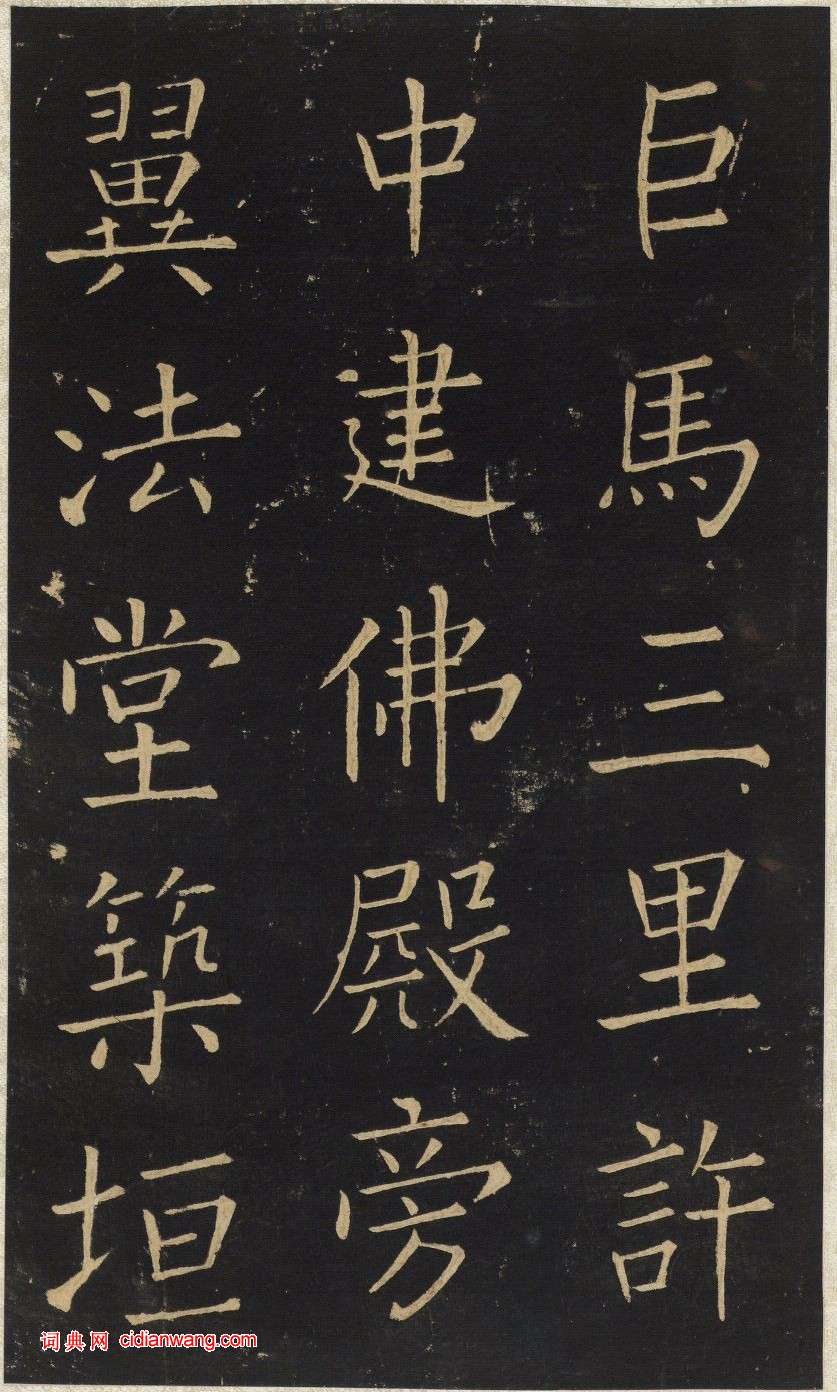 巨馬三里許
中建佛殿旁
翼法堂築垣
词典网 cidianwang.com